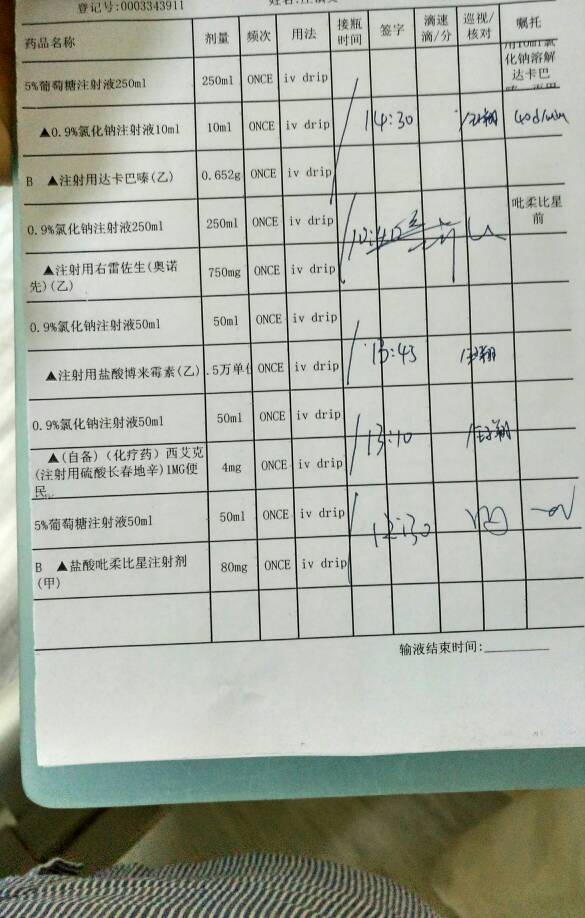 登记号:0003343911
药品名称 剂量 频次 用法 接瓶时间 签字 滴速滴/分 巡视/核对 嘱托
5%葡萄糖注射液250ml 250ml ONCE iv drip 用10ml氯化钠溶解达卡巴
▲0.9%氯化钠注射液10ml 10ml ONCE iv drip 14:30 40d/min
B ▲注射用达卡巴嗪(乙) 0.652g ONCE iv drip
0.9%氯化钠注射液250ml 250ml ONCE iv drip 吡柔比星前
▲注射用右雷佐生(奥诺先)(乙) 750mg ONCE iv drip
0.9%氯化钠注射液50ml 50ml ONCE iv drip
▲注射用盐酸博来霉素(乙) .5万单位 ONCE iv drip 13:45
0.9%氯化钠注射液50ml 50ml ONCE iv drip
▲(自备)(化疗药)西艾克(注射用硫酸长春地辛)1MG便民 4mg ONCE iv drip 13:10
5%葡萄糖注射液50ml 50ml ONCE iv drip 12:30
B ▲盐酸吡柔比星注射剂(甲) 80mg ONCE iv drip
输液结束时间: